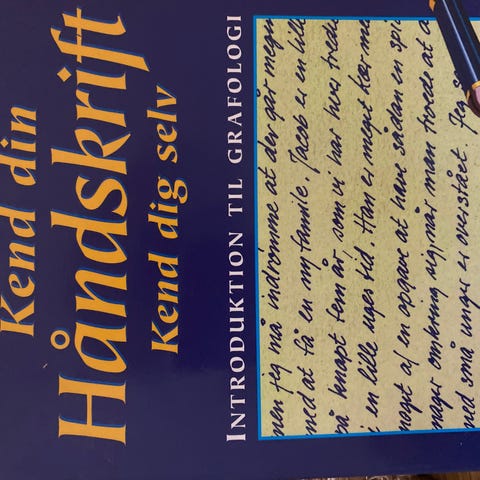 Kend din
Håndskrift
Kend dig selv
INTRODUKTION TIL GRAFOLOGI
men jeg må indrømme at der går megen
med at få en ny familie. Jacob er en lille
på knapt fem år, som vi har hver tredi
i en lille uges tid. Han er meget kær me
noget af en opgave at have sådan en spi
noget omkring sig, når man troede at a
med små unger er overstået. Jeg